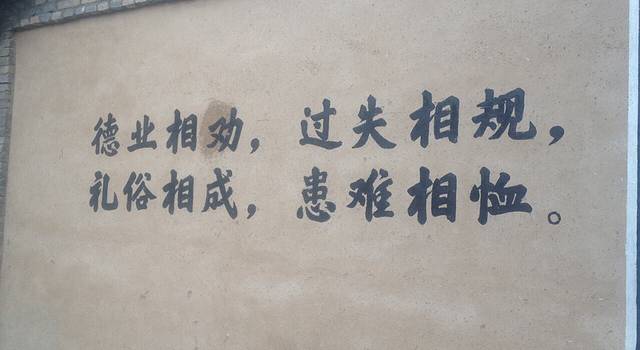 德业相劝，过失相规，
礼俗相成，患难相恤。